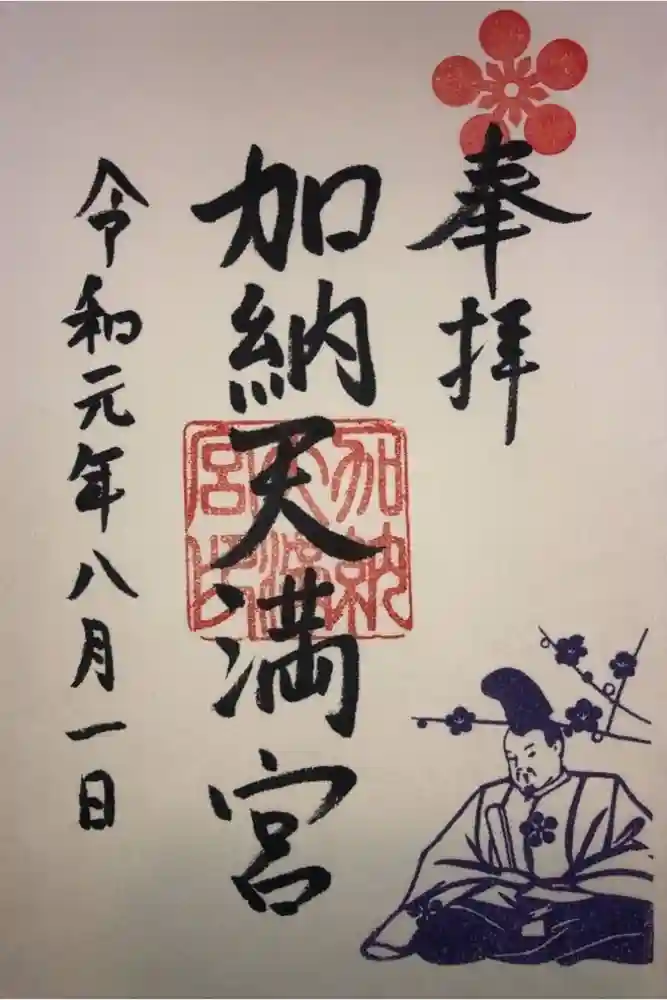 奉拝
加納天満宮
加納
天満
宮印
令和元年八月一日